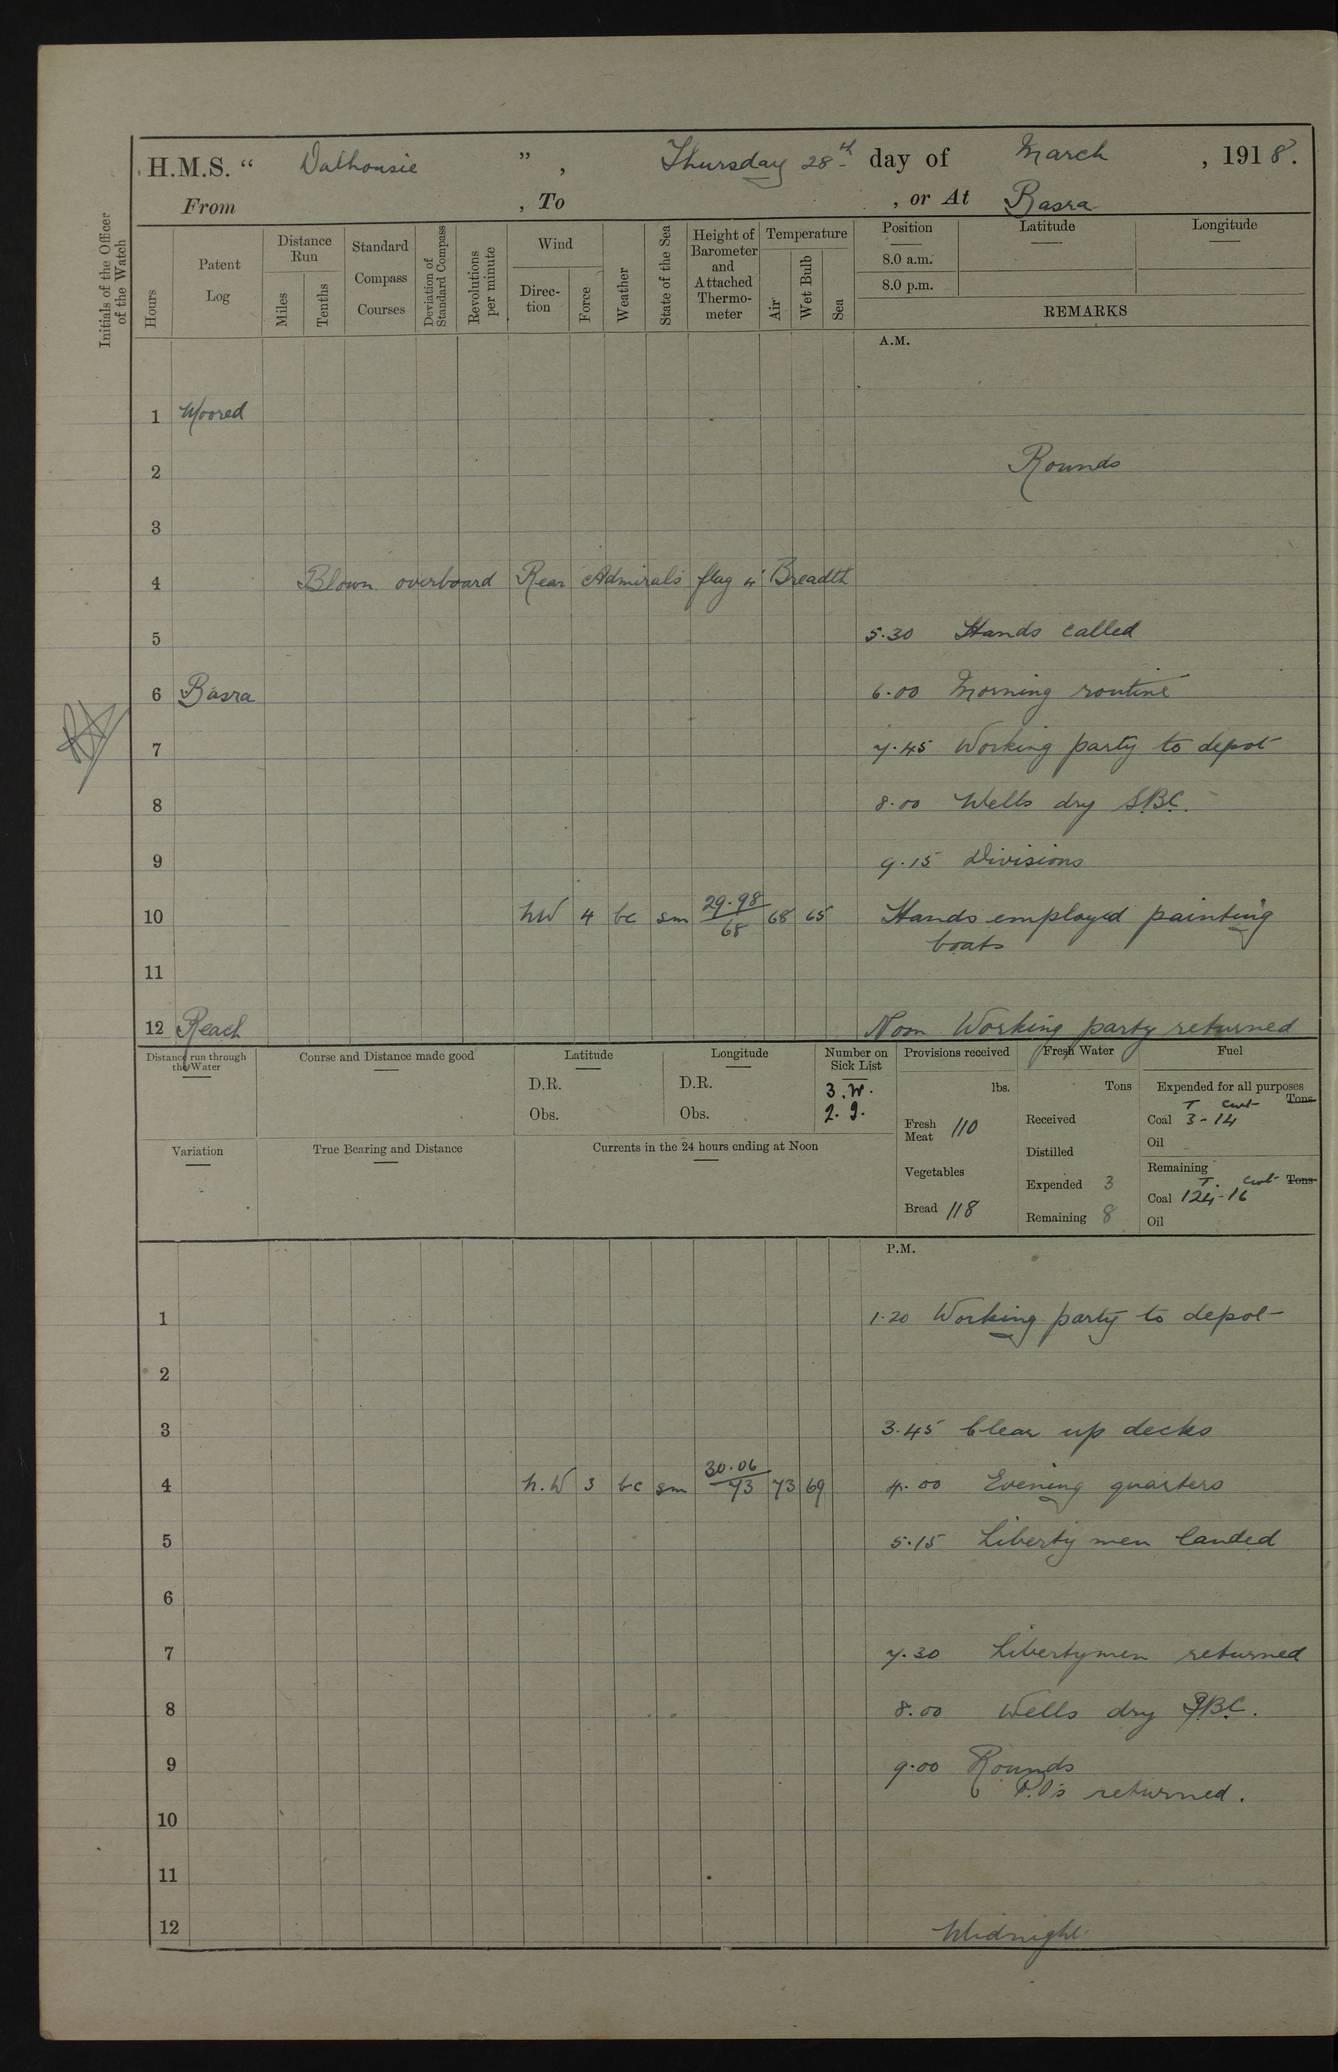 H.M.S. “ Dalhousie ” , Thursday 28th day of March , 1918.
From , To , or At Basra
Initials of the Officer of the Watch
Hours
Patent Log
Distance Run
Miles
Tenths
Standard Compass Courses
Deviation of Standard Compass
Revolutions per minute
Wind
Direc- tion
Force
Weather
State of the Sea
Height of Barometer and Attached Thermo- meter
Temperature
Air
Wet Bulb
Sea
Position Latitude Longitude
8.0 a.m.
8.0 p.m.
REMARKS
A.M.
1 Moored
2 Rounds
3
4 Blown overboard Rear Admirals flag 4 Breadth
5 5.30 Hands called
6 Basra 6.00 Morning routine
7 7.45 Working party to depot
8 8.00 Wells dry SBC.
9 9.15 Divisions
10 NW 4 bc sm 29.98/68 68 65 Hands employed painting
boats
11
12 Reach Noon Working party returned
Distance run through the Water
Course and Distance made good
Latitude
D.R.
Obs.
Longitude
D.R.
Obs.
Number on Sick List
3. W.
2. I.
Provisions received
lbs.
Fresh Meat 110
Vegetables
Bread 118
Fresh Water
Tons
Received
Distilled
Expended 3
Remaining 8
Fuel
Expended for all purposes
Tons
T cwt
Coal 3-14
Oil
Remaining
T. cwt Tons
Coal 124-16
Oil
Variation
True Bearing and Distance
Currents in the 24 hours ending at Noon
P.M.
1 1.20 Working party to depot
2
3 3.45 Clear up decks
4 N.W 3 bc sm 30.06/73 73 69 4.00 Evening quarters
5 5.15 Liberty men landed
6
7 7.30 Libertymen returned
8 8.00 Wells dry SBC.
9 9.00 Rounds
P.O's returned.
10
11
12 Midnight